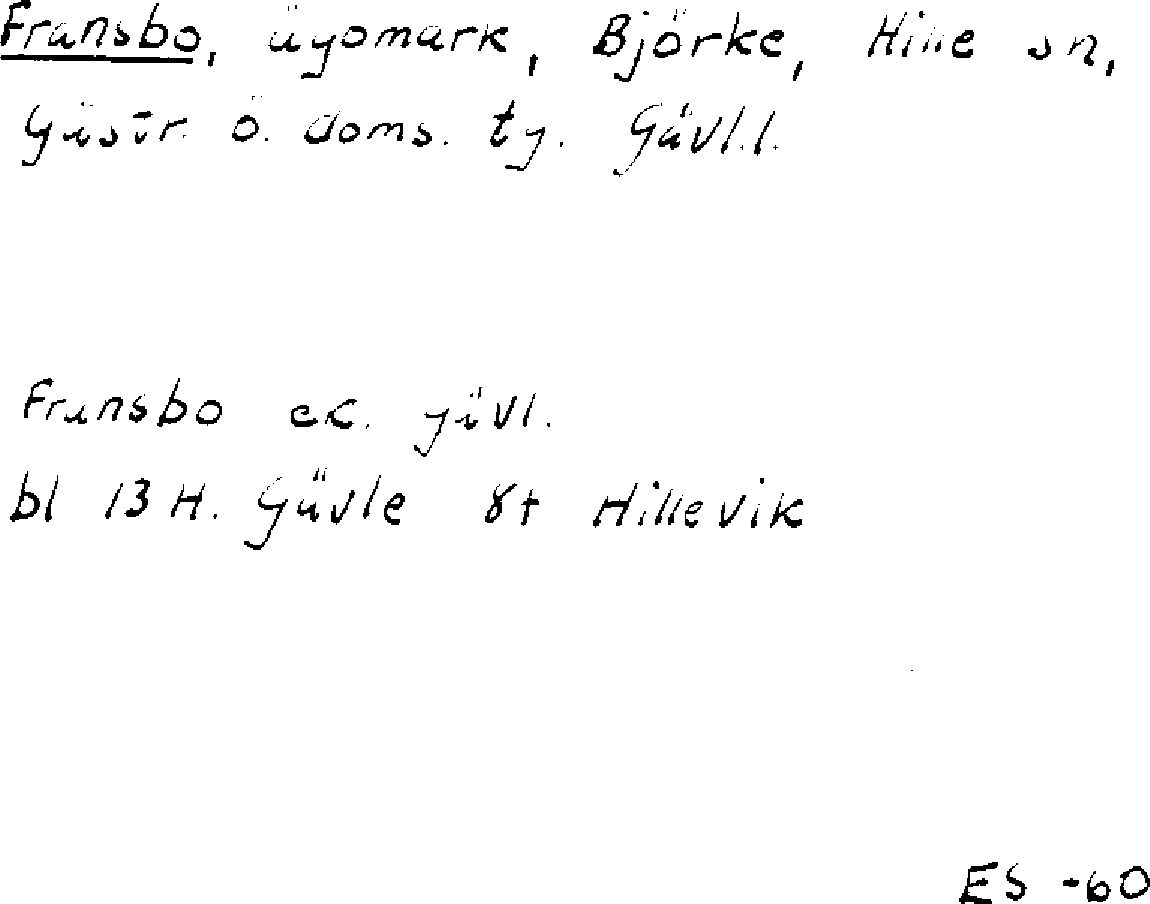 Fransbo, ägomark, Björke, Hille sn,
Gästr. ö. doms. tg. Gävl.l.
Fransbo ek. gävl.
bl 13 H. Gävle 8f Hillevik
ES -60